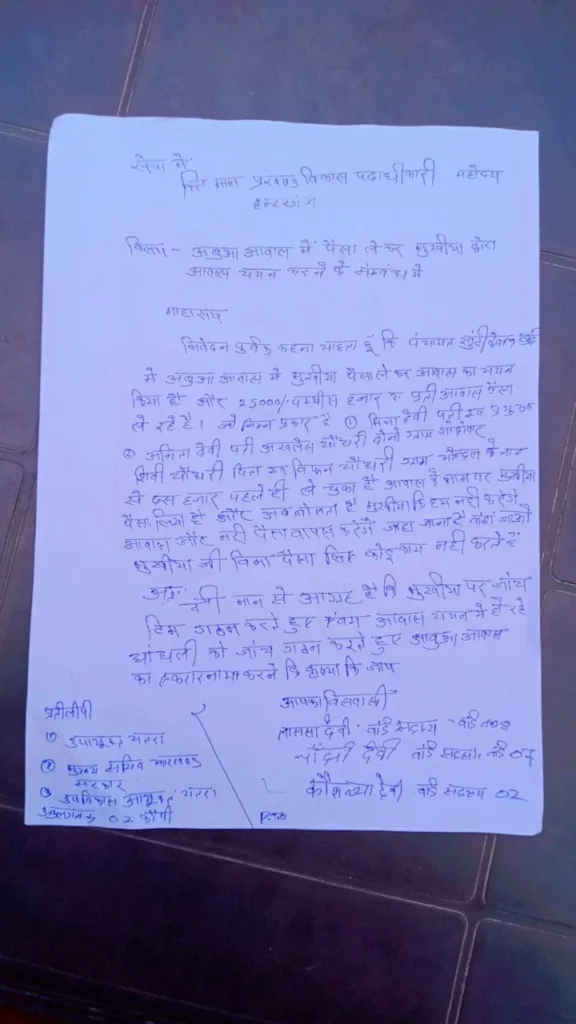 सेवा में
श्री मान प्रखण्ड विकास पदाधीकारी महोदय
हन्टरगंज
विसय - अबुआ आवास में पैसा लेकर मुखीया द्वारा
आवास चयन करने के संम्बंध में
माहासय
निवेदन पुर्वक कहना चाहता हूँ कि पंचायत
में अबुआ आवास में मुखीया पैसा लेकर आवास का चयन
किया है और 25000/- पच्चीस हजार रु प्रती आवास पैसा
ले रहे है। जो निम्न प्रकार है ① मिना देवी पती
② अनिता देवी पती अखलेस चौधरी दोनो ग्राम
चौधरी पिता स्व बिफन चौधरी ग्राम के नाम
से दस हजार पहले ही ले चुका है आवास के नाम पर मुखीया
पैसा लिया है और अब बोलता है मुखीया कि हम नही करेंगे
आवास और नही पैसा वापस करेंगें जहा जाना है वहां जाओ
मुखीया जी बिना पैसा लिए कोइ काम नही करते हैं
अतः
श्री मान से आग्रह है कि मुखीया पर जांच
टिम गठन करते हुए एवंम आवास चयन में हो रहे
धांधली को जांच गठन करते हुए आबुआ आवास
का करने कि कृप्या कि जाय
आपका विसवासी
लालसा देवी वार्ड सदस्य - वार्ड न०
देवी वार्ड सदस्य वार्ड 07
कौशल्या देवी वार्ड सदस्य 02
प्रतीलीपी
① उपायुक्त चतरा
② मुख्य सचिव झारखण्ड
सरकार
③ उप विकास आयुक्त चतरा
02 कॉपी